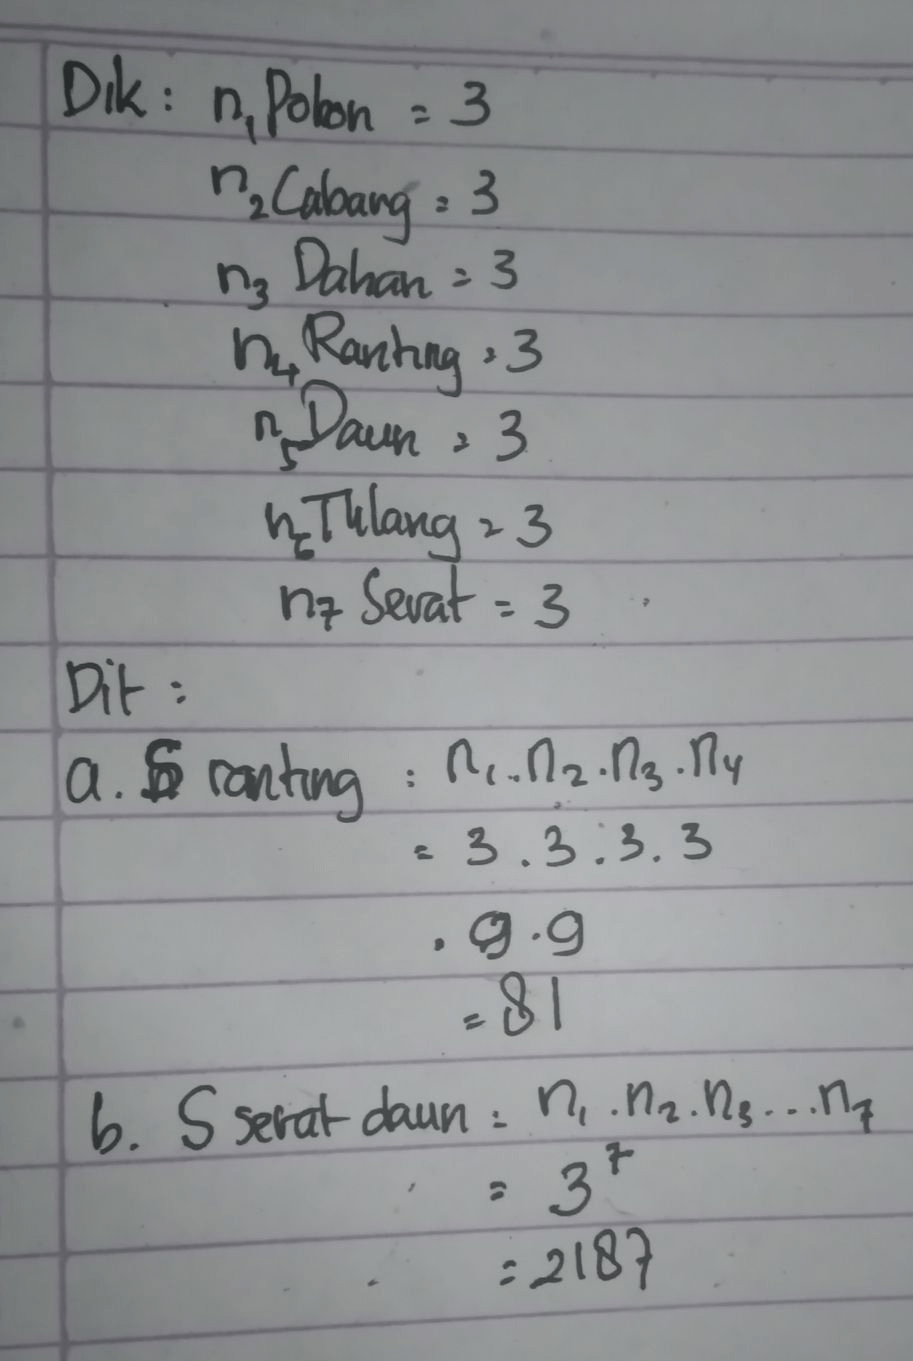 Dik : n₁ Pohon = 3
n₂ Cabang = 3
n₃ Dahan = 3
n₄ Ranting = 3
n₅ Daun = 3
n₆ Tulang = 3
n₇ Serat = 3
Dit :
a. S ranting : n₁ . n₂ . n₃ . n₄
= 3 . 3 . 3 . 3
= 9 . 9
= 81
b. S serat daun = n₁ . n₂ . n₃ ... n₇
= 3⁷
= 2187